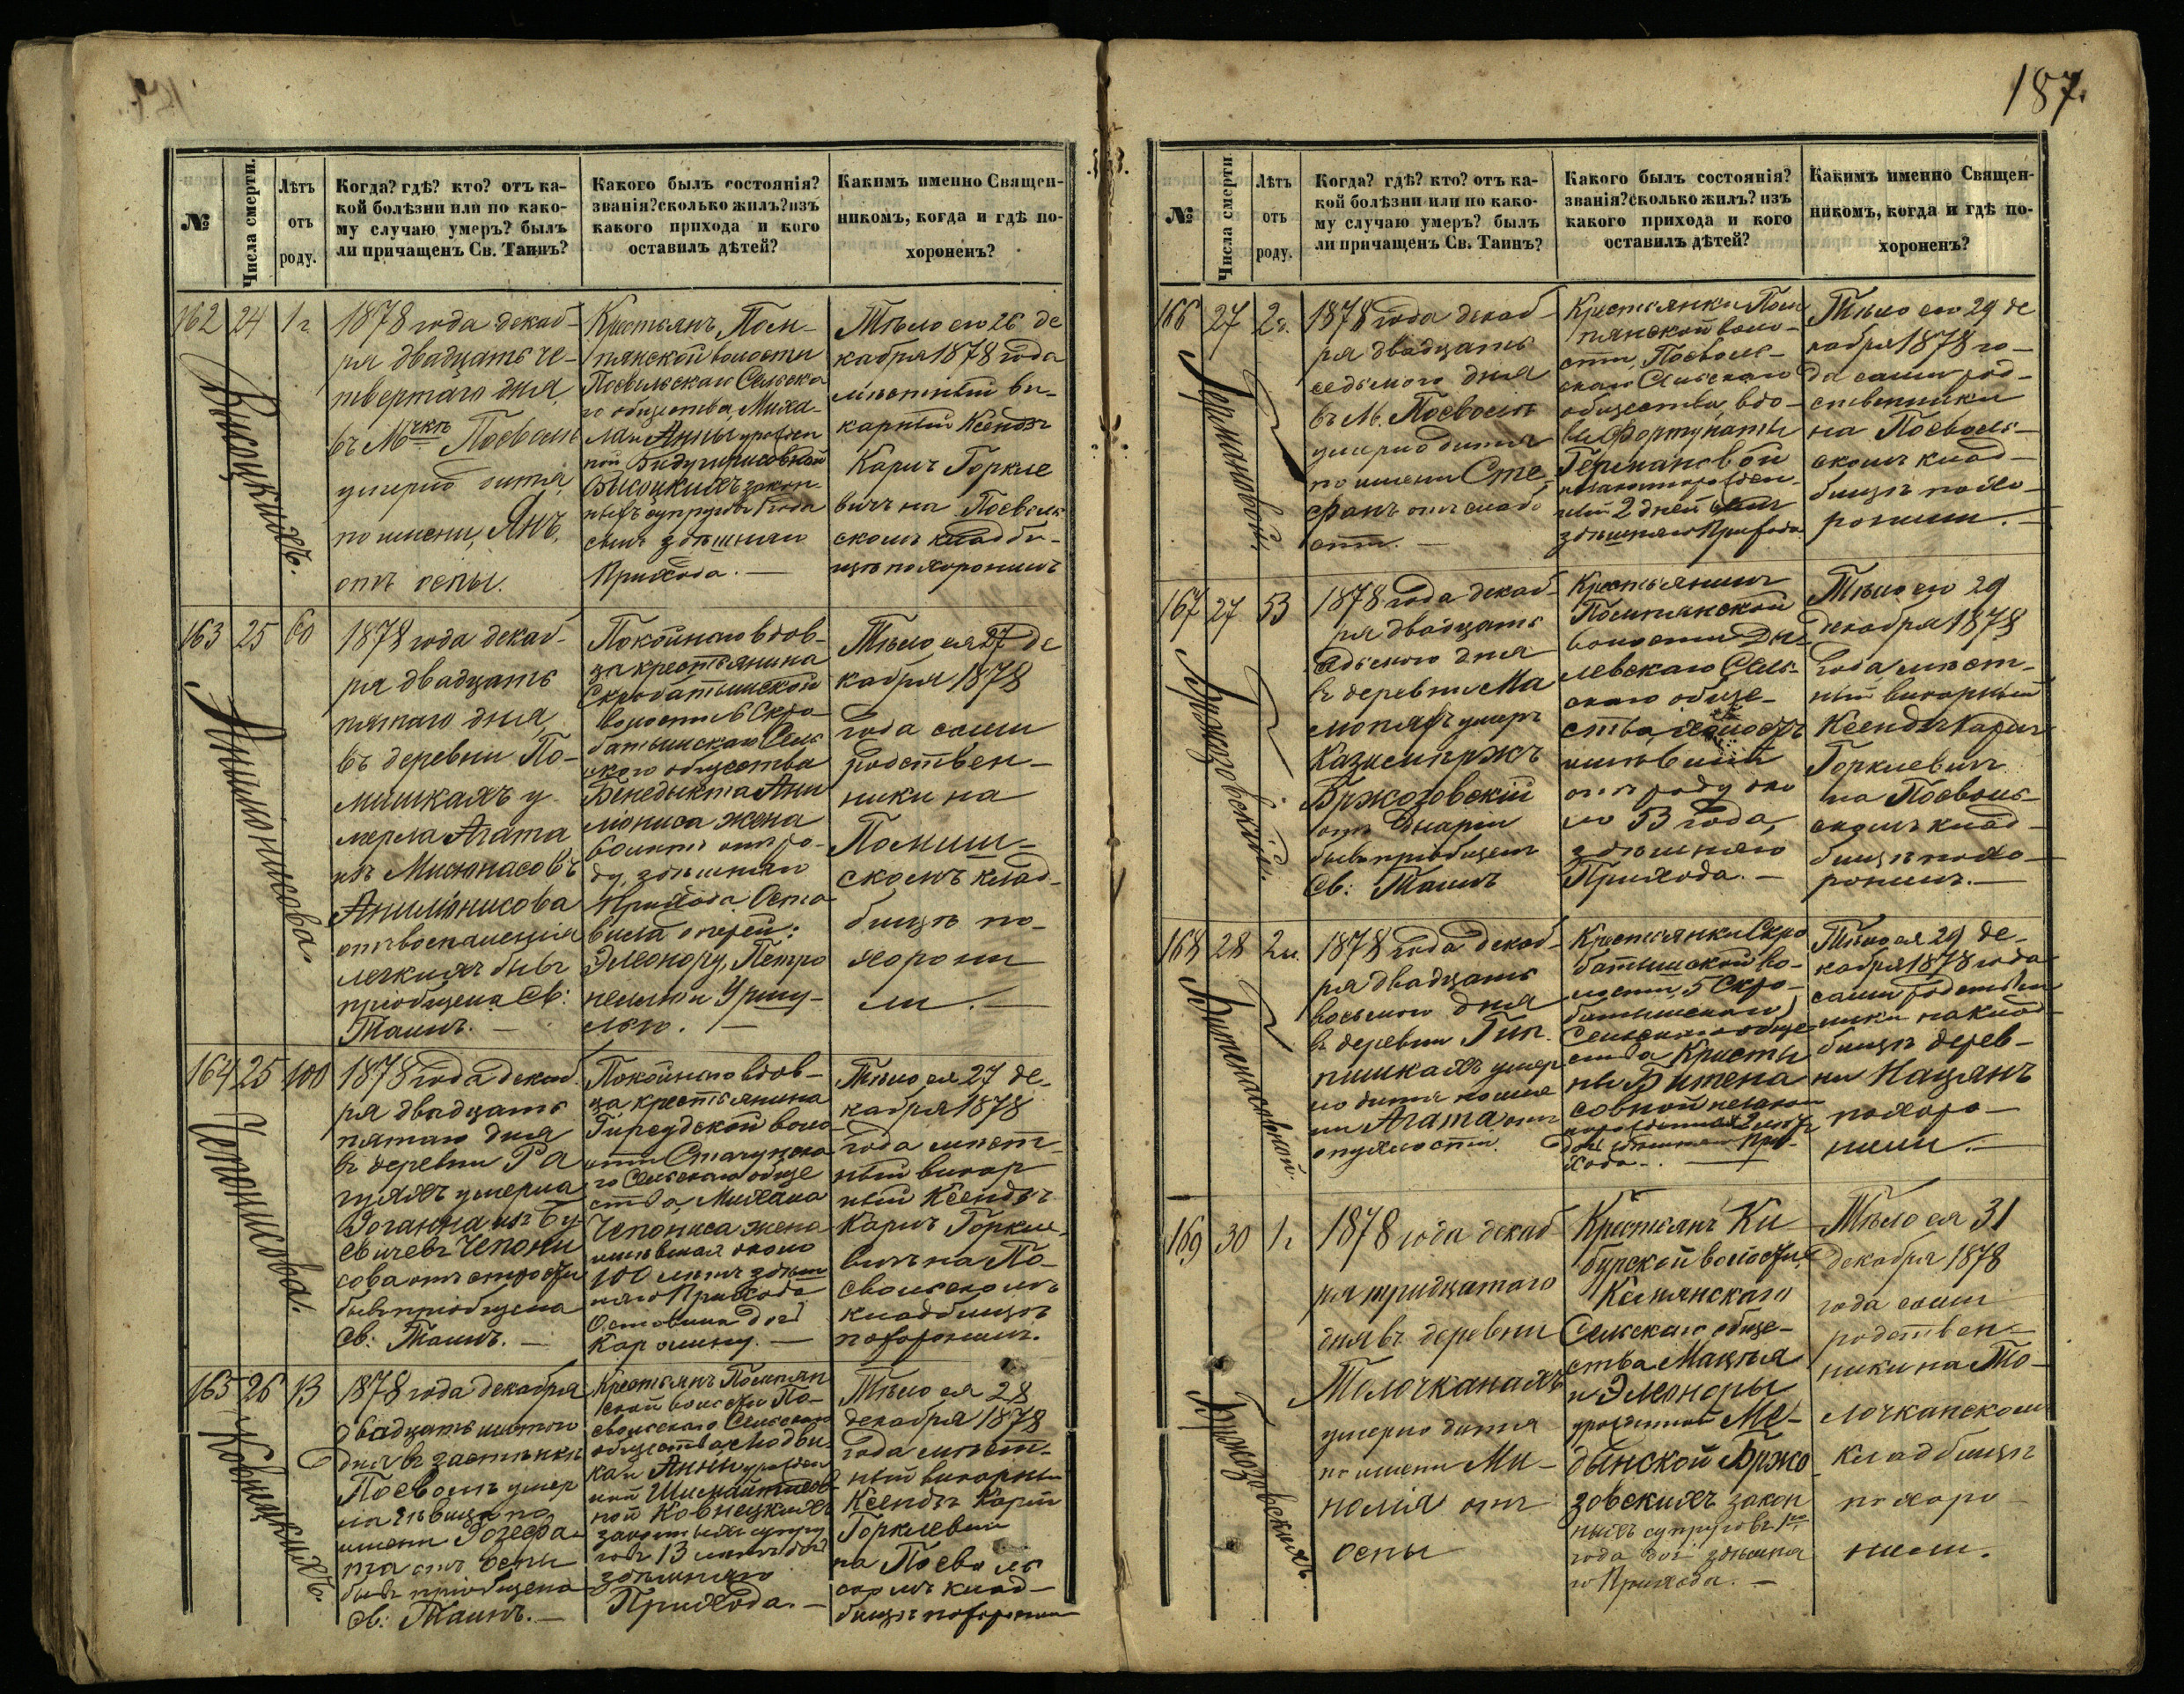 187.
№
Числа смерти.
Лѣтъ
отъ
роду.
Когда? гдѣ? кто? отъ ка-
кой болѣзни или по како-
му случаю умеръ? былъ
ли причащенъ Св. Таинъ?
Какого былъ состоянія?
званія? сколько жилъ? изъ
какого прихода и кого
оставилъ дѣтей?
Какимъ именно Священ-
никомъ, когда и гдѣ по-
хороненъ?
162
24
1 г
Высоцкихъ.
1878 года декаб-
ря двадцать че-
твертаго дня
въ Мчкѣ Посволь
умерло дитя
по имени, Янъ,
отъ оспы.
Крестьянъ Пом-
пянской волости
Посвольскаго Сельска
го общества Миха-
ла и Анны урожден
ной
Высоцкихъ закон-
ныхъ супруговъ 1 года
сынъ здѣшняго
Прихода. —
Тѣло его 26 де
кабря 1878 года
мѣстный ви-
карный Ксендзъ
Карлъ Горкле
вичъ на Посволь
скомъ кладби-
щѣ похоронилъ
163
25
60
Анимонисова.
1878 года декаб-
ря двадцать
пятаго дня,
въ деревни По-
мишкахъ у
мерла Агата
изъ Мисюнасовъ
Анимонисова
отъ воспаленія
легкихъ бывъ
пріобщена Св:
Таинъ. —
Покойнаго вдов-
ца крестьянина
Скробатышской
волости 6 Скро-
батышскаго Сель
скаго общества
Бенедыкта Ани
мониса жена
60 лѣтъ отъ ро-
ду, здѣшняго
Прихода Оста
вила дочерей:
Элеонору, Петро
нелю и Уршу-
лю. —
Тѣло ея 27 де
кабря 1878
года сами
родствен-
ники на
Помиш-
скомъ клад-
бищѣ по-
хорони
ли. —
164
25
100
Чепонисова.
1878 года декаб.
ря двадцать
пятаго дня
въ деревни Ра
гуляхъ умерла
Іоганна изъ Бу-
свичевъ Чепони
сова отъ старости
бывъ пріобщена
Св: Таинъ. —
Покойнаго вдов-
ца крестьянина
воло
сти
го Сельскаго обще
ства, Михала
Чепониса жена
имѣвшая около
100 лѣтъ здѣш
няго Прихода
Оставила дочь
Каролину. —
Тѣло ея 27 де-
кабря 1878
года мѣст-
ный викар
ный Ксендзъ
Карлъ Горкле-
вичъ на По-
свольскомъ
кладбищѣ
похоронилъ.
165
26
13
Ковнецкихъ.
1878 года декабря
двадцать шестого
дня въ застѣнки
Посволь умер
ла дѣвица по
имени Іозефа-
та отъ оспы
бывъ пріобщена
Св: Таинъ. —
Крестьянъ Помпян
ской волости По-
свольскаго Сельскаго
общества Людви-
ка и Анны урожден
ной
ной Ковнецкихъ
законныхъ супру
говъ 13 лѣтъ дочь
здѣшняго
Прихода. —
Тѣло ея 28
декабря 1878
года мѣст-
ный викарный
Ксендзъ Карлъ
Горклевичъ
на Посволь
скомъ клад-
бищѣ похоронилъ
№
Числа смерти.
Лѣтъ
отъ
роду.
Когда? гдѣ? кто? отъ ка-
кой болѣзни или по како-
му случаю умеръ? былъ
ли причащенъ Св. Таинъ?
Какого былъ состоянія?
званія? сколько жилъ? изъ
какого прихода и кого
оставилъ дѣтей?
Какимъ именно Священ-
никомъ, когда и гдѣ по-
хороненъ?
166
27
2 д.
Германовой.
1878 года декаб-
ря двадцать
седьмого дня
въ М. Посволѣ
умерло дитя
по имени Сте-
фанъ отъ слабо
сти. —
Крестьянки Пом
пянской воло-
сти, Посволь-
скаго Сельскаго
общества, вдо-
вы Фортунаты
Германовой
незаконорожден-
ный 2 дней сынъ
здѣшняго Прихода.
Тѣло его 29 де
кабря 1878 го-
да сами род-
ственники
на Посволь-
скомъ клад-
бищѣ похо-
ронили. —
167
27
53
Бржозовскій.
1878 года декаб-
ря двадцать
седьмого дня
въ деревни Ма
мопяхъ умеръ
Казимиржъ
Бржозовскій
отъ
бывъ пріобщенъ
Св: Таинъ
Крестьянинъ
Помпянской
волости
левскаго Сель-
скаго обще-
ства, холостъ
имѣвшій
отъ роду око
ло 53 года,
здѣшняго
Прихода. —
Тѣло его 29
декабря 1878
года, мѣст-
ный викарный
Ксендзъ Карлъ
Горклевичъ
на Посволь-
скомъ клад-
бищѣ похо-
ронилъ. —
168
28
2 м.
Битенасовной.
1878 года декаб-
ря двадцать
восьмого дня
въ деревни Гип.
пишкахъ умер
ло дитя по име
ни Агата отъ
опухлости.
Крестьянки Скро
батышской во-
лости, 5 Скро-
батышскаго
Сельскаго обще
ства Кристы
ны Битена
совной незакон
норожденная 2 мѣс.
дочь здѣшняго При-
хода. —
Тѣло ея 29 де-
кабря 1878 года
сами родствен
ники на клад-
бищѣ дерев-
ни Нацянъ
похоро-
нили. —
169
30
1 г
Бржозовскихъ.
1878 года декаб
ря тридцатаго
дня въ деревни
Толочканахъ
умерло дитя
по имени Ми-
халія отъ
оспы
Крестьянъ Ки
бурской волости,
Кепянскаго
Сельскаго обще-
ства Мацѣя
и Элеоноры
урожденной Ме-
дынской Бржо
зовскихъ закон
ныхъ супруговъ 1го
года дочь здѣшня
го Прихода. —
Тѣло ея 31
декабря 1878
года сами
родствен-
ники на То-
лочканскомъ
кладбищѣ
похоро-
нили.